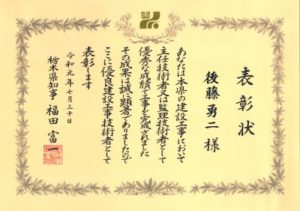 表彰状
後藤勇二様
あなたは本県の建設工事において
主任技術者又は監理技術者として
優秀な成績で工事を完成されました
その成果は誠に顕著でありましたので
ここに優良建設工事技術者として
表彰します
令和元年七月三十日
栃木県知事 福田富一